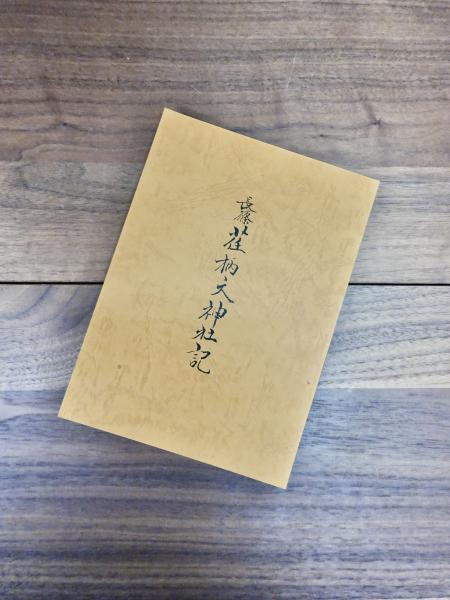 長藤 荏柄天神社記